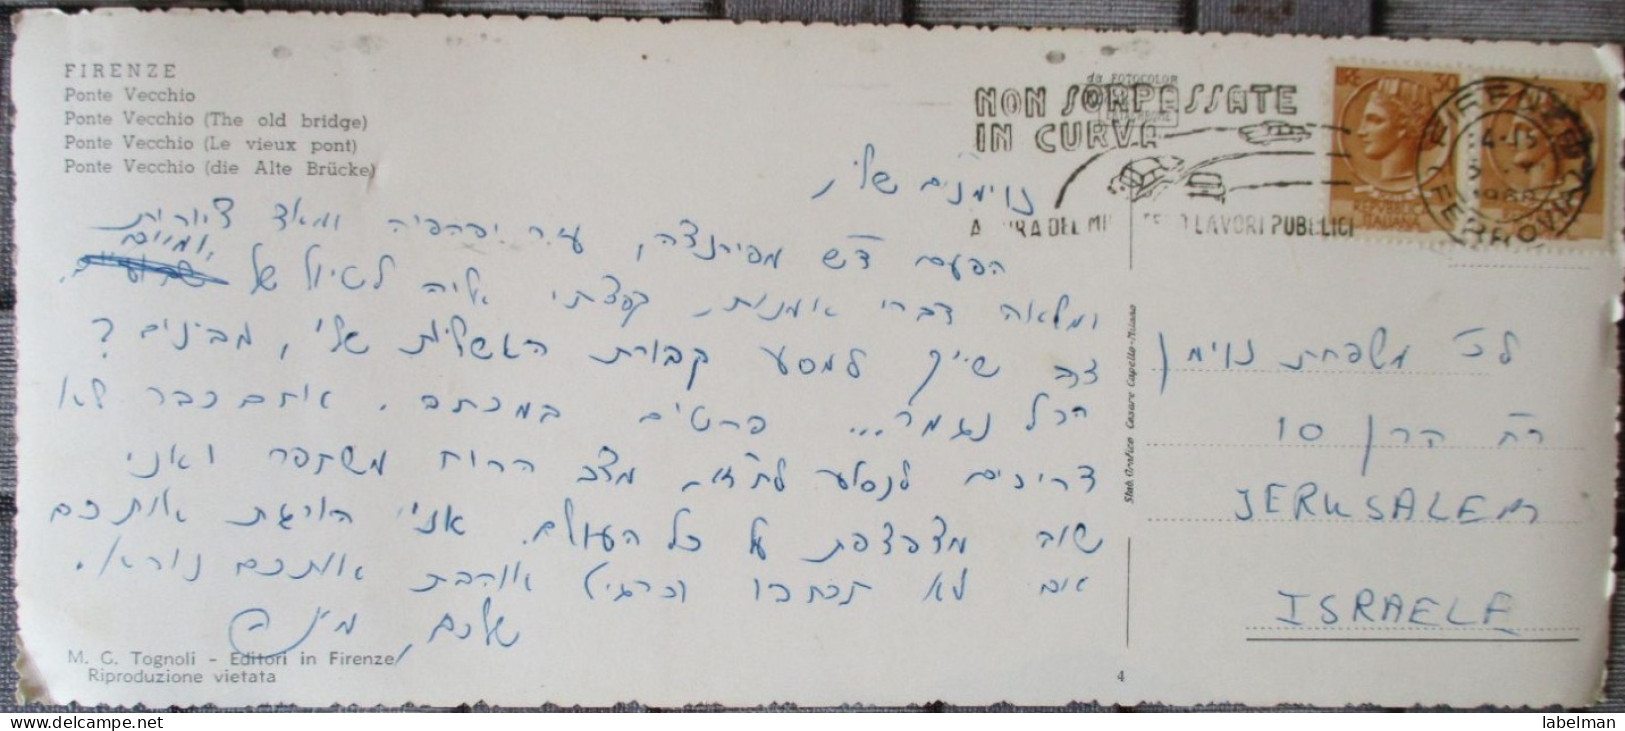 FIRENZE
Ponte Vecchio
Ponte Vecchio (The old bridge)
Ponte Vecchio (Le vieux pont)
Ponte Vecchio (die Alte Brücke)
da FOTOCOLOR
NON SORPASSATE
IN CURVA
A CURA DEL MINISTERO LAVORI PUBBLICI
LIRE 30
30
FIRENZE
FERROVIA
נוימנים שלי,
הפעם ד"ש מפירנצה, עיר יפהפיה ומאד ציורית
ומלאה דברי אומנות, קפצתי אליה לטיול של יומיים.
זה שייך למסע קבורת האשליות שלי, מבינים?
הכל נגמר... פרטים במכתב. אתם כבר לא
צריכים לנסוע מצב הרוח משתפר ואני
שוב מצפצפת על כל העולם. אני הורגת אתכם
אם לא תכתבו וכרגיל אוהבת אותכם נורא.
שלכם,
לכ' משפחת נוימן
רח' הרן 10
JERUSALEM
ISRAELE
M. G. Tognoli - Editori in Firenze
Riproduzione vietata
Stab. Grafico Cesare Capello-Milano
4
labelman